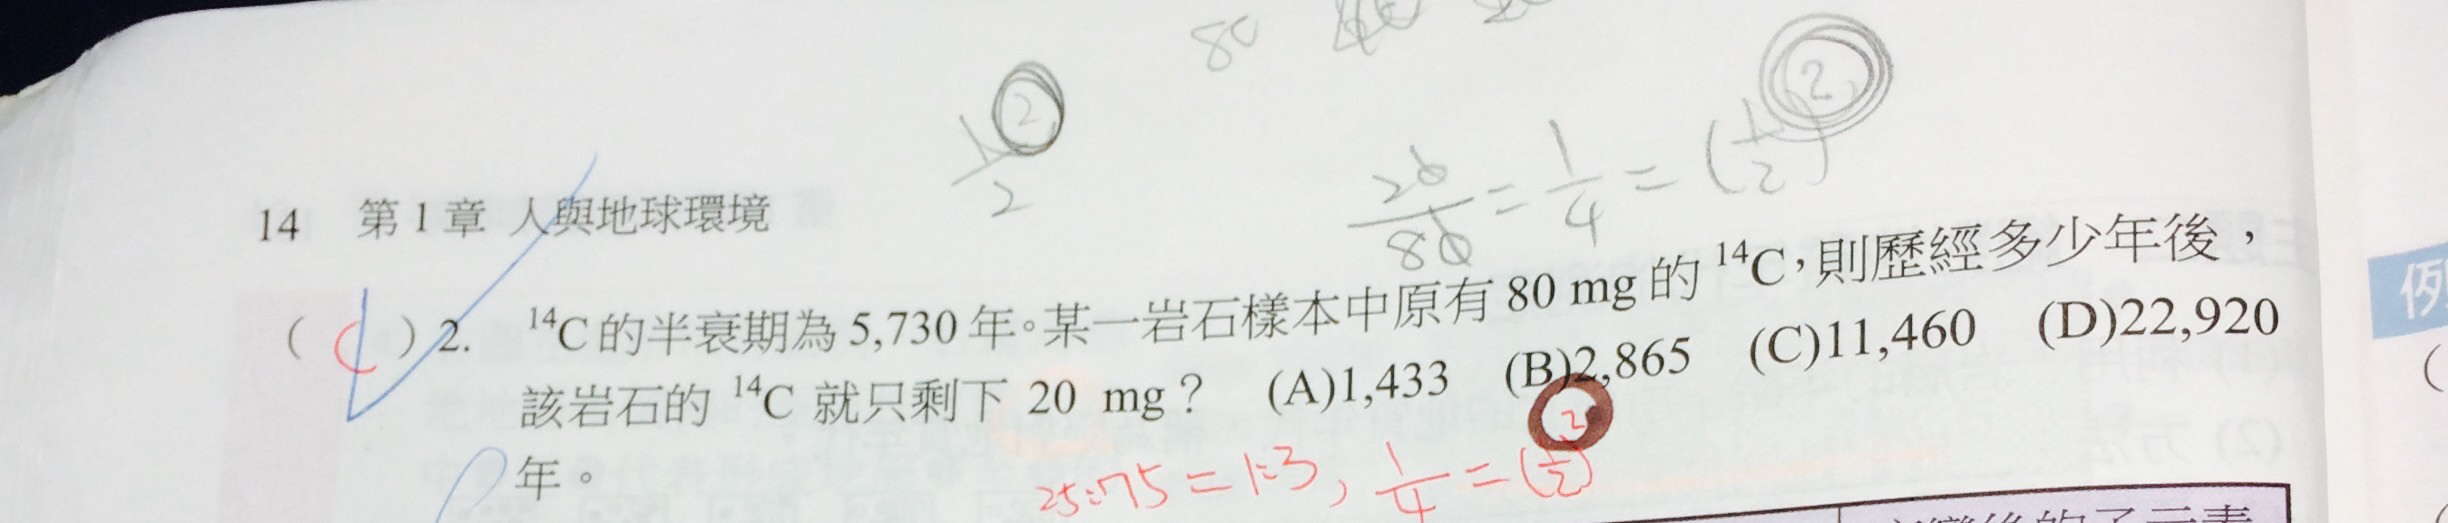 80
1/2 2
20/80 = 1/4 = (1/2)2
14 第1章 人與地球環境
( C ) 2. ¹⁴C的半衰期為5,730年。某一岩石樣本中原有80 mg的¹⁴C，則歷經多少年後，
該岩石的 ¹⁴C 就只剩下 20 mg？ (A)1,433 (B)2,865 (C)11,460 (D)22,920
年。
25:75=1:3, 1/4=(1/2)2
例